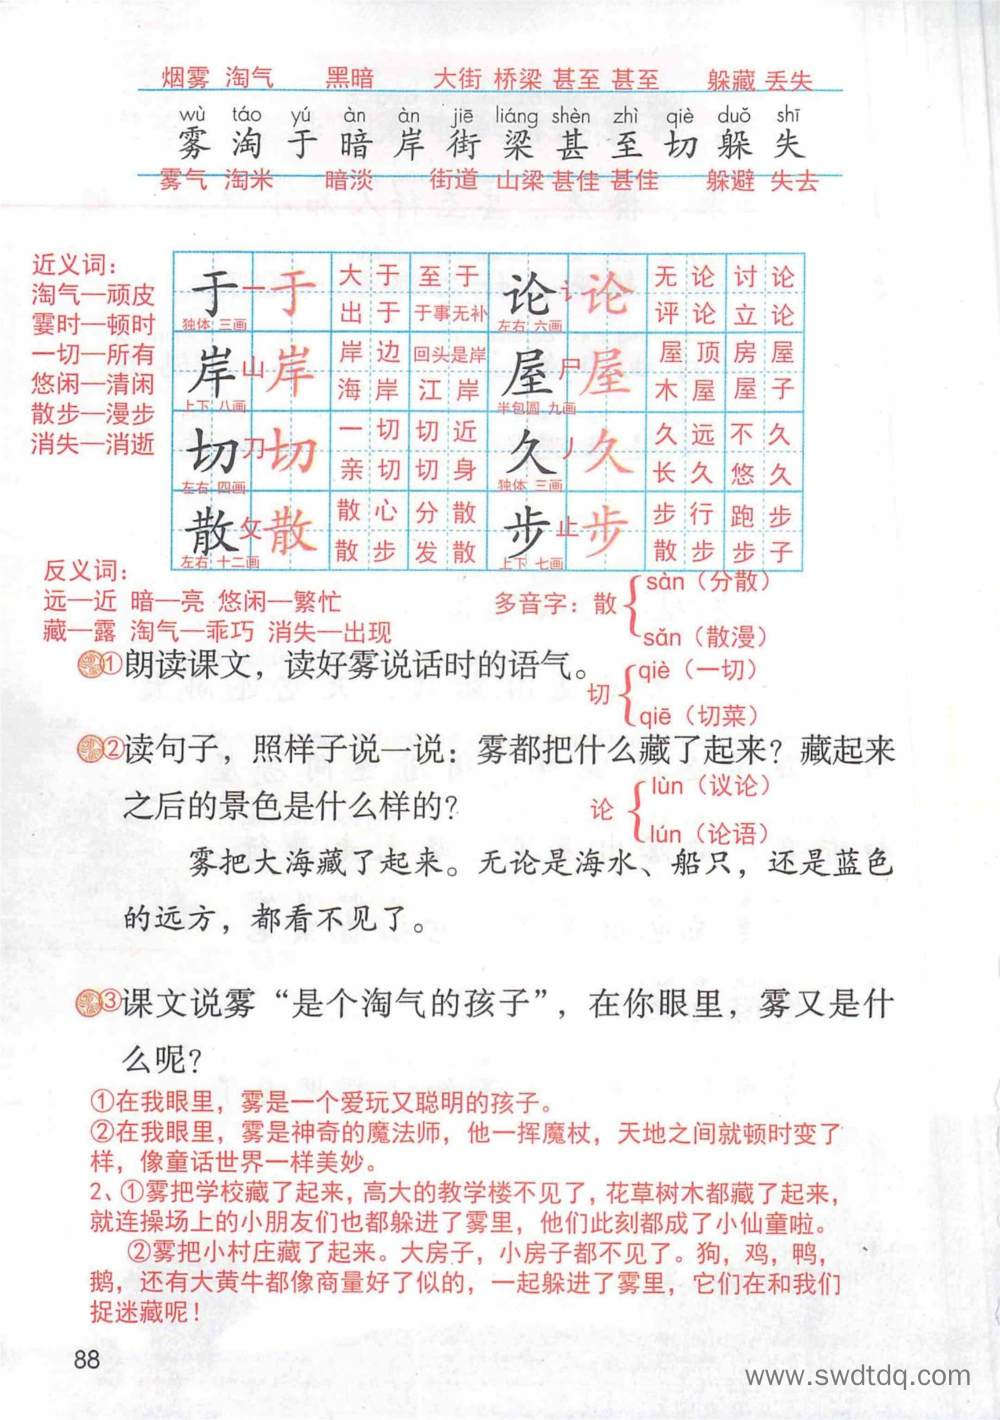 烟雾 淘气 黑暗 大街 桥梁 甚至 甚至 躲藏 丢失
wù táo yú àn àn jiē liáng shèn zhì qiè duǒ shī
雾 淘 于 暗 岸 街 梁 甚 至 切 躲 失
雾气 淘米 暗淡 街道 山梁 甚佳 甚佳 躲避 失去
近义词：
淘气—顽皮
霎时—顿时
一切—所有
悠闲—清闲
散步—漫步
消失—消逝
于 一 于 大于 至于 论 讠 论 无论 讨论
独体 三画 出于 于事无补 左右 六画 评论 立论
岸 山 岸 岸边 回头是岸 屋 尸 屋 屋顶 房屋
上下 八画 海岸 江岸 半包围 九画 木屋 屋子
切 刀 切 一切 切近 久 丿 久 久远 不久
左右 四画 亲切 切身 独体 三画 长久 悠久
散 攵 散 散心 分散 步 止 步 步行 跑步
左右 十二画 散步 发散 上下 七画 散步 步子
反义词：
远—近 暗—亮 悠闲—繁忙
藏—露 淘气—乖巧 消失—出现
多音字：散 sàn（分散）
sǎn（散漫）
①朗读课文，读好雾说话时的语气。
切 qiè（一切）
qiē（切菜）
②读句子，照样子说一说：雾都把什么藏了起来？藏起来
之后的景色是什么样的？
论 lùn（议论）
lún（论语）
雾把大海藏了起来。无论是海水、船只，还是蓝色
的远方，都看不见了。
③课文说雾“是个淘气的孩子”，在你眼里，雾又是什
么呢？
①在我眼里，雾是一个爱玩又聪明的孩子。
②在我眼里，雾是神奇的魔法师，他一挥魔杖，天地之间就顿时变了
样，像童话世界一样美妙。
2、①雾把学校藏了起来，高大的教学楼不见了，花草树木都藏了起来，
就连操场上的小朋友们也都躲进了雾里，他们此刻都成了小仙童啦。
②雾把小村庄藏了起来。大房子，小房子都不见了。狗，鸡，鸭，
鹅，还有大黄牛都像商量好了似的，一起躲进了雾里，它们在和我们
捉迷藏呢！
88
www.swdtdq.com